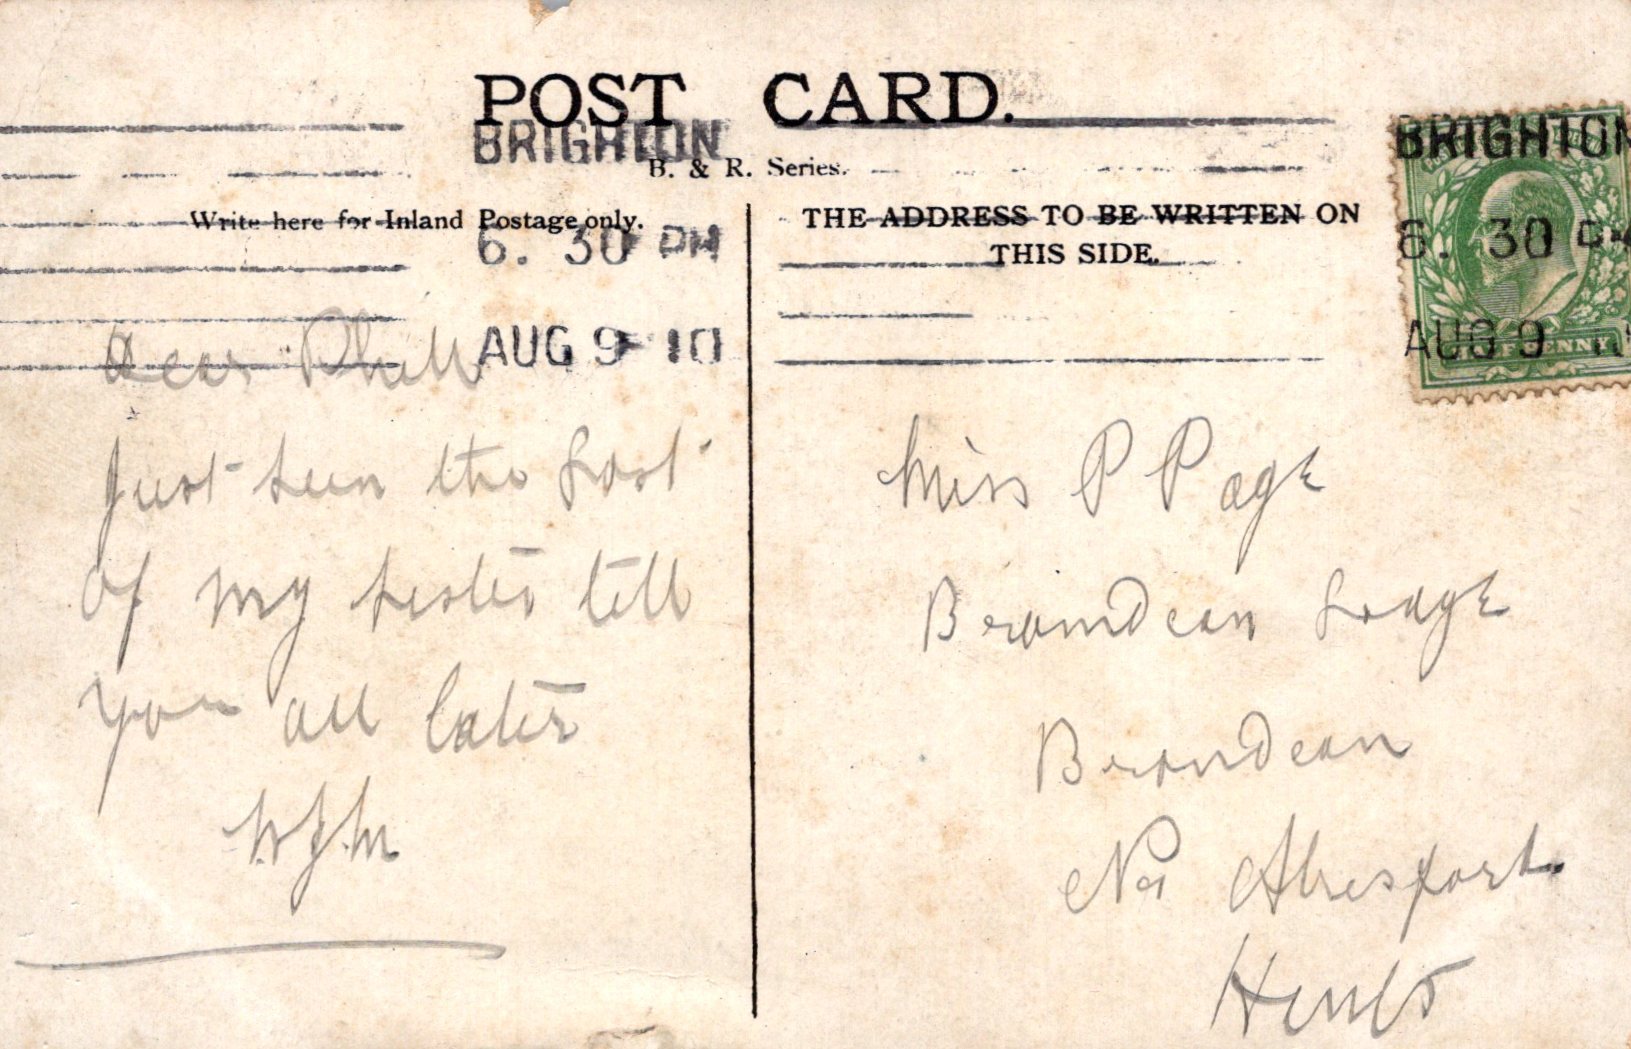 POST CARD.
BRIGHTON
BRIGHTON
B. & R. Series.
Write here for Inland Postage only.
THE ADDRESS TO BE WRITTEN ON
THIS SIDE.
6. 30 PM
6. 30 PM
AUG 9 10
AUG 9 10
HALFPENNY
Dear Phell
Just seen the last
of my sister tell
you all later
W.J.M
Miss P Page
Bramdean Lodge
Bramdean
Nr Alresford
Hants